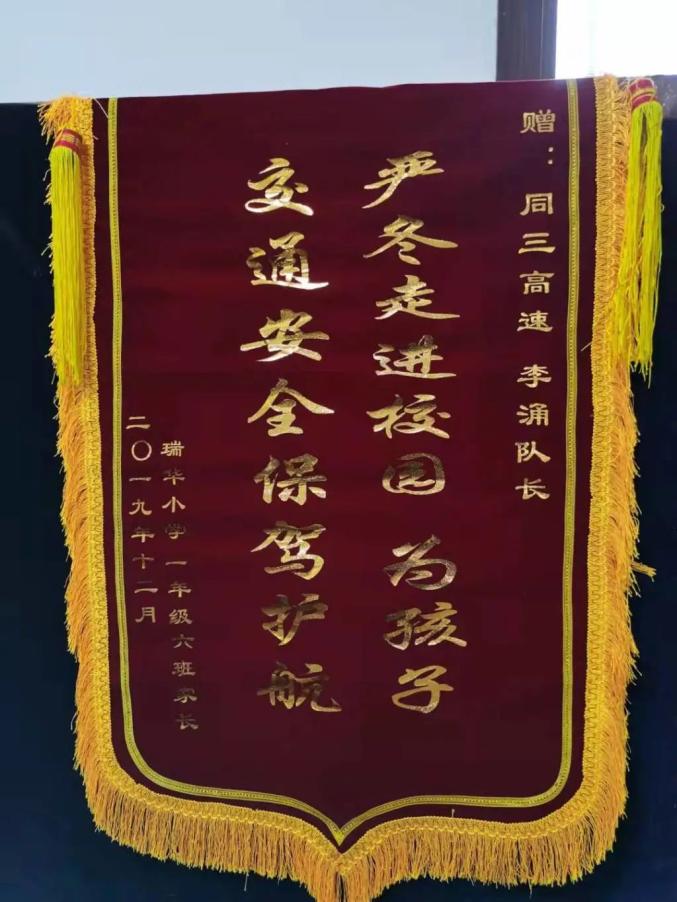 赠：同三高速 李涌队长
严冬走进校园 为孩子
交通安全保驾护航
瑞华小学一年级六班家长
二〇一九年十二月